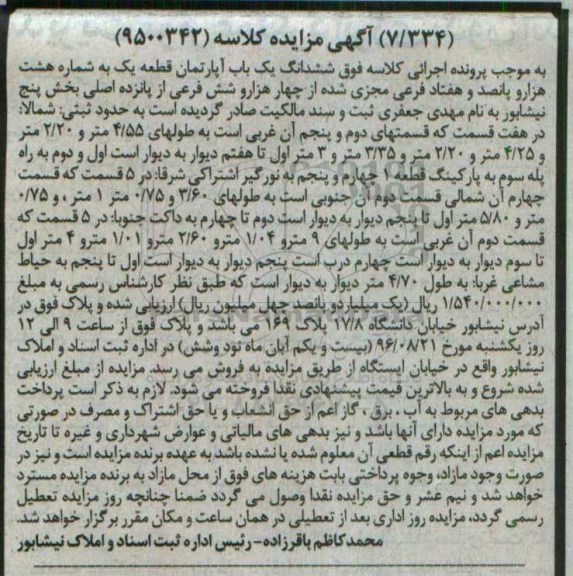 (۷/۳۳۴) آگهی مزایده کلاسه (۹۵۰۰۳۴۲)
به موجب پرونده اجرائی کلاسه فوق ششدانگ یک باب آپارتمان قطعه یک به شماره هشت
هزارو پانصد و هفتاد فرعی مجزی شده از چهار هزارو شش فرعی از پانزده اصلی بخش پنج
نیشابور به نام مهدی جعفری ثبت و سند مالکیت صادر گردیده است به حدود ثبتی: شمالا:
در هفت قسمت که قسمتهای دوم و پنجم آن غربی است به طولهای ۴/۵۵ متر و ۲/۲۰ متر
و ۴/۲۵ متر و ۲/۲۰ متر و ۳/۳۵ متر و ۳ متر اول تا هفتم دیوار به دیوار است اول و دوم به راه
پله سوم به پارکینگ قطعه ۱ چهارم و پنجم به نورگیر اشتراکی شرقا: در ۵ قسمت که قسمت
چهارم آن شمالی قسمت دوم آن جنوبی است به طولهای ۳/۶۰ و ۰/۷۵ متر ۱ متر ، و ۰/۷۵
متر و ۵/۸۰ متر اول تا پنجم دیوار به دیوار است دوم تا چهارم به داکت جنوبا: در ۵ قسمت که
قسمت دوم آن غربی است به طولهای ۹ مترو ۱/۰۴ مترو ۲/۶۰ مترو ۱/۰۱ مترو ۴ متر اول
تا سوم دیوار به دیوار است چهارم درب است پنجم دیوار به دیوار است اول تا پنجم به حیاط
مشاعی غربا: به طول ۴/۷۰ متر دیوار به دیوار است که طبق نظر کارشناس رسمی به مبلغ
۱/۵۴۰/۰۰۰/۰۰۰ ریال (یک میلیارد و پانصد چهل میلیون ریال) ارزیابی شده و پلاک فوق در
آدرس نیشابور خیابان دانشگاه ۱۷/۸ پلاک ۱۶۹ می باشد و پلاک فوق از ساعت ۹ الی ۱۲
روز یکشنبه مورخ ۹۶/۰۸/۲۱ (بیست و یکم آبان ماه نود وشش) در اداره ثبت اسناد و املاک
نیشابور واقع در خیابان ایستگاه از طریق مزایده به فروش می رسد. مزایده از مبلغ ارزیابی
شده شروع و به بالاترین قیمت پیشنهادی نقدا فروخته می شود. لازم به ذکر است پرداخت
بدهی های مربوط به آب ، برق ، گاز اعم از حق انشعاب و یا حق اشتراک و مصرف در صورتی
که مورد مزایده دارای آنها باشد و نیز بدهی های مالیاتی و عوارض شهرداری و غیره تا تاریخ
مزایده اعم از اینکه رقم قطعی آن معلوم شده یا نشده باشد به عهده برنده مزایده است و نیز در
صورت وجود مازاد، وجوه پرداختی بابت هزینه های فوق از محل مازاد به برنده مزایده مسترد
خواهد شد و نیم عشر و حق مزایده نقدا وصول می گردد ضمنا چنانچه روز مزایده تعطیل
رسمی گردد، مزایده روز اداری بعد از تعطیلی در همان ساعت و مکان مقرر برگزار خواهد شد.
محمدکاظم باقرزاده-رئیس اداره ثبت اسناد و املاک نیشابور